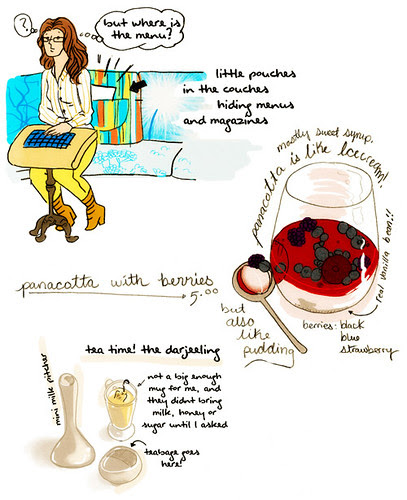 ?
but where is
the menu?
little pouches
in the couches
hiding menus
and magazines
mostly sweet syrup.
panacotta is like Icecream!
real vanilla bean!!
panacotta with berries
5.00
but
also
like
pudding
berries: black
blue
strawberry
tea time! the darjeeling
mini milk pitcher
not a big enough
mug for me, and
they didnt bring
milk, honey or
sugar until I asked
teabage goes
here!